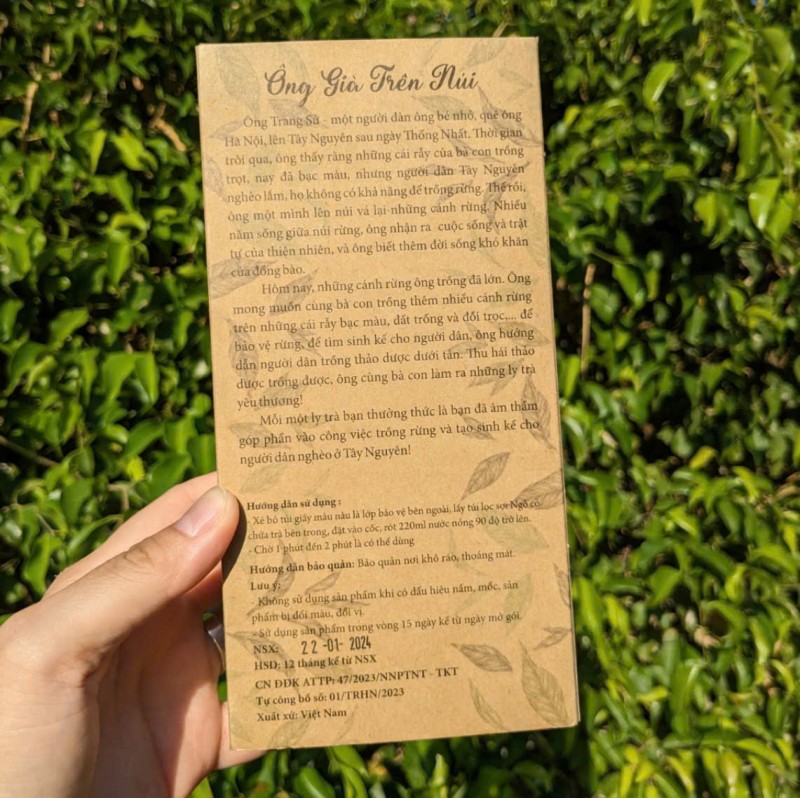 Ông Già Trên Núi
Ông Trang Sứ - một người dân ông bé nhỏ, quê ông
Hà Nội, lên Tây Nguyên sau ngày Thống Nhất. Thời gian
trôi qua, ông thấy rằng những cái rẫy của bà con trồng
trọt, nay đã bạc màu, nhưng người dân Tây Nguyên
nghèo lắm, họ không có khả năng để trồng rừng. Thế rồi,
ông một mình lên núi vá lại những cánh rừng. Nhiều
năm sống giữa núi rừng, ông nhận ra cuộc sống và trật
tự của thiên nhiên, và ông biết thêm đời sống khó khăn
của đồng bào.
Hôm nay, những cánh rừng ông trồng đã lớn. Ông
mong muốn cùng bà con trồng thêm nhiều cánh rừng
trên những cái rẫy bạc màu, đất trống và đồi trọc,... để
bảo vệ rừng, để tìm sinh kế cho người dân, ông hướng
dẫn người dân trồng thảo dược dưới tán. Thu hái thảo
dược trồng được, ông cùng bà con làm ra những ly trà
yêu thương!
Mỗi một ly trà bạn thưởng thức là bạn đã âm thầm
góp phần vào công việc trồng rừng và tạo sinh kế cho
người dân nghèo ở Tây Nguyên!
Hướng dẫn sử dụng :
- Xé bỏ túi giấy màu nâu là lớp bảo vệ bên ngoài, lấy túi lọc sợi Ngô có
chứa trà bên trong, đặt vào cốc, rót 220ml nước nóng 90 độ trở lên.
- Chờ 1 phút đến 2 phút là có thể dùng
Hướng dẫn bảo quản: Bảo quản nơi khô ráo, thoáng mát.
Lưu ý:
- Không sử dụng sản phẩm khi có dấu hiệu nấm, mốc, sản
phẩm bị đổi màu, đổi vị.
- Sử dụng sản phẩm trong vòng 15 ngày kể từ ngày mở gói.
NSX: 22-01-2024
HSD: 12 tháng kể từ NSX
CN ĐĐK ATTP: 47/2023/NNPTNT - TKT
Tự công bố số: 01/TRHN/2023
Xuất xứ: Việt Nam